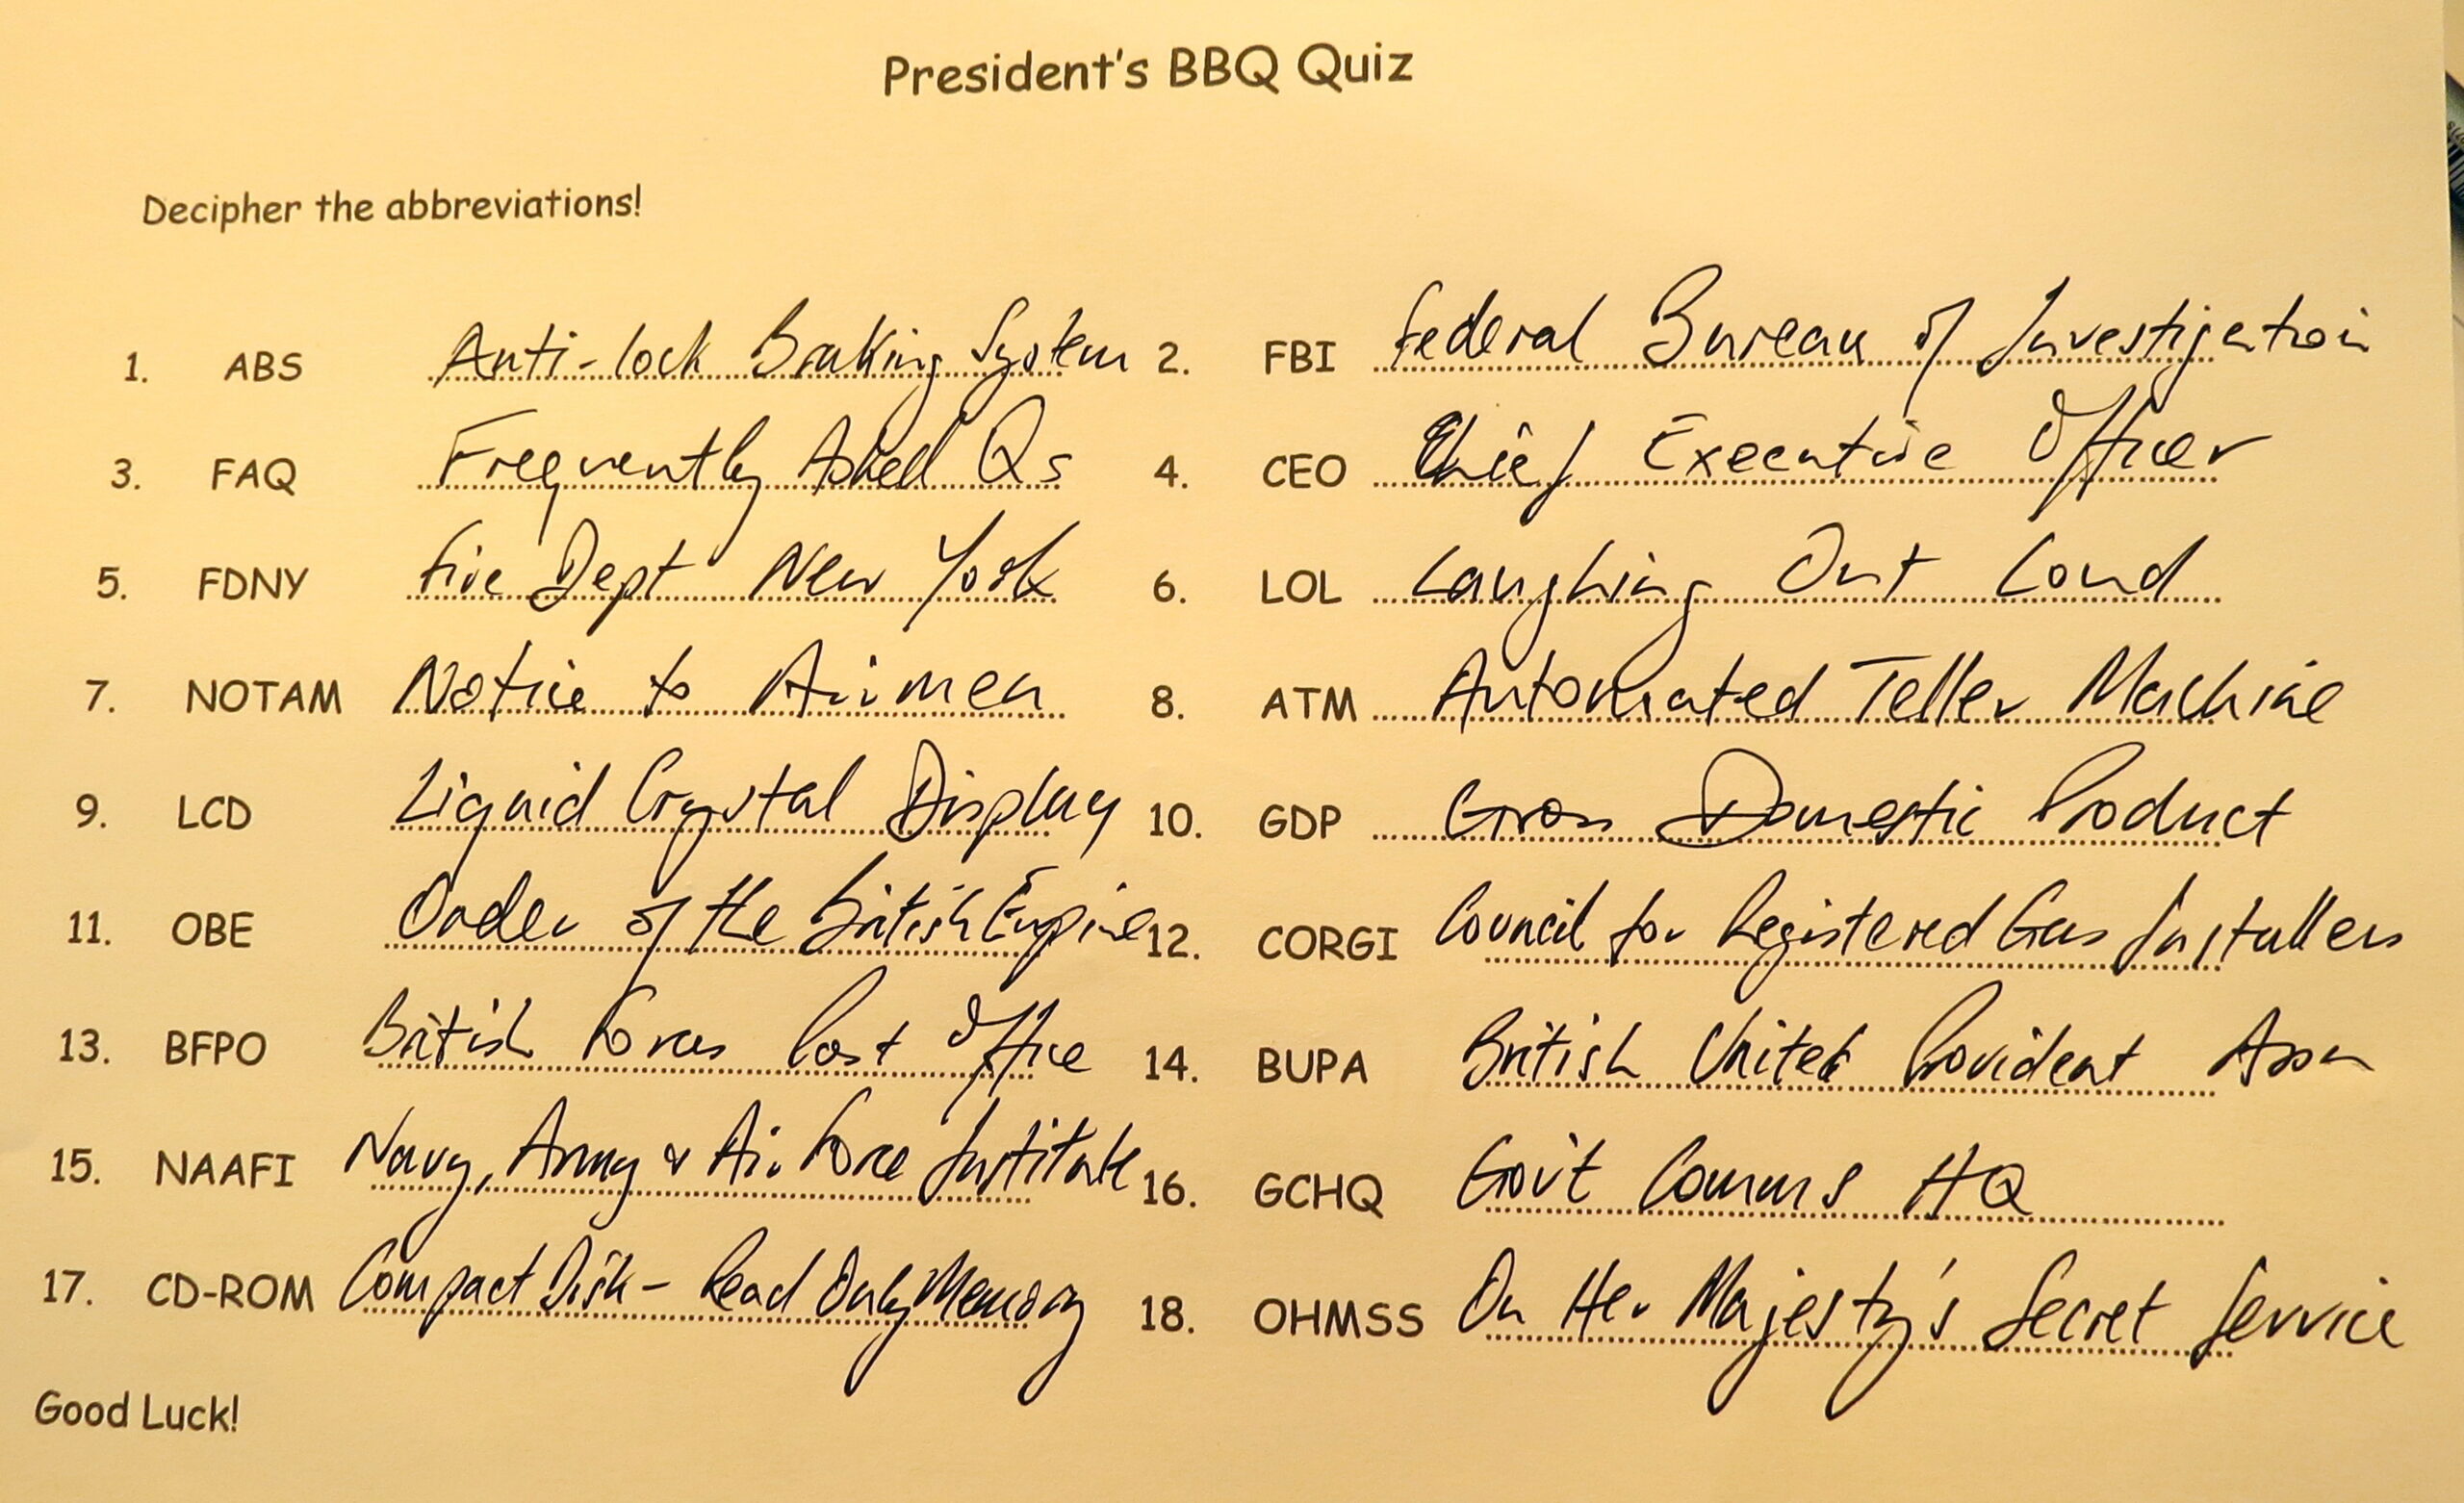 President's BBQ Quiz
Decipher the abbreviations!
1. ABS Anti-lock Braking System 2. FBI Federal Bureau of Investigation
3. FAQ Frequently Asked Qs 4. CEO Chief Executive Officer
5. FDNY Fire Dept New York 6. LOL Laughing Out Loud
7. NOTAM Notice to Airmen 8. ATM Automated Teller Machine
9. LCD Liquid Crystal Display 10. GDP Gross Domestic Product
11. OBE Order of the British Empire 12. CORGI Council for Registered Gas Installers
13. BFPO British Forces Post Office 14. BUPA British United Provident Assn
15. NAAFI Navy, Army & Air Force Institute 16. GCHQ Gov't Comms HQ
17. CD-ROM Compact Disk - Read Only Memory 18. OHMSS On Her Majesty's Secret Service
Good Luck!